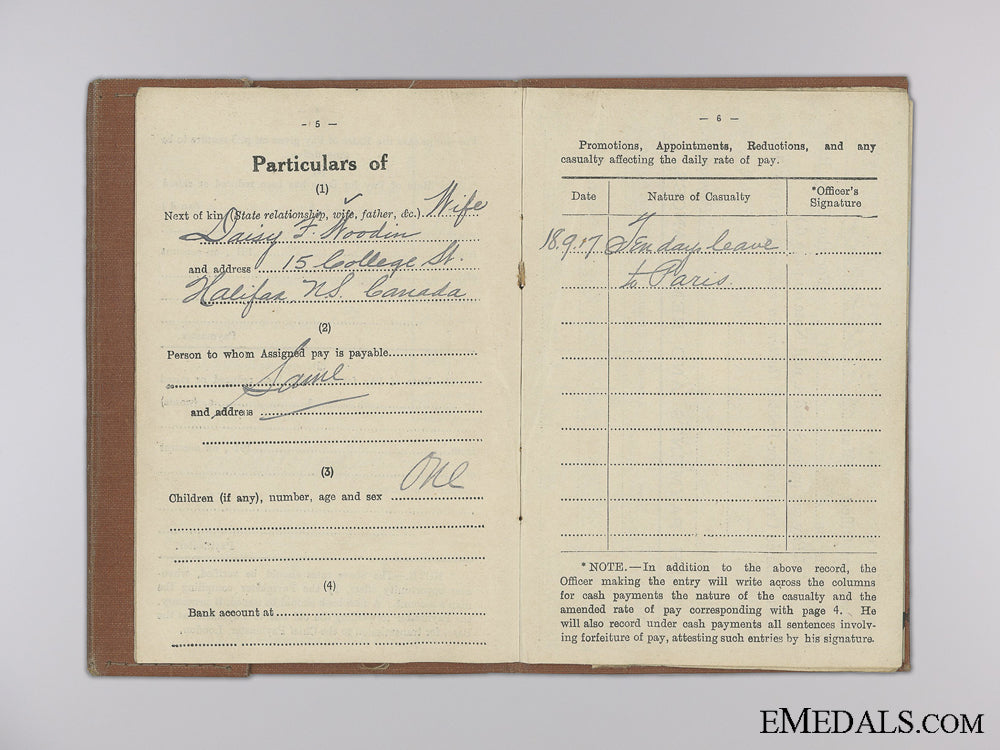 - 5 -
Particulars of
(1)
Next of kin (State relationship, wife, father, &c.) Wife
Daisy F. Woodin
and address 15 College St.
Halifax N.S. Canada
(2)
Person to whom Assigned pay is payable
Same
and address
(3)
Children (if any), number, age and sex One
(4)
Bank account at
- 6 -
Promotions, Appointments, Reductions, and any
casualty affecting the daily rate of pay.
Date Nature of Casualty *Officer's Signature
18.9.17 Ten days leave
to Paris.
* NOTE.—In addition to the above record, the
Officer making the entry will write across the columns
for cash payments the nature of the casualty and the
amended rate of pay corresponding with page 4. He
will also record under cash payments all sentences involv-
ing forfeiture of pay, attesting such entries by his signature.
EMEDALS.COM